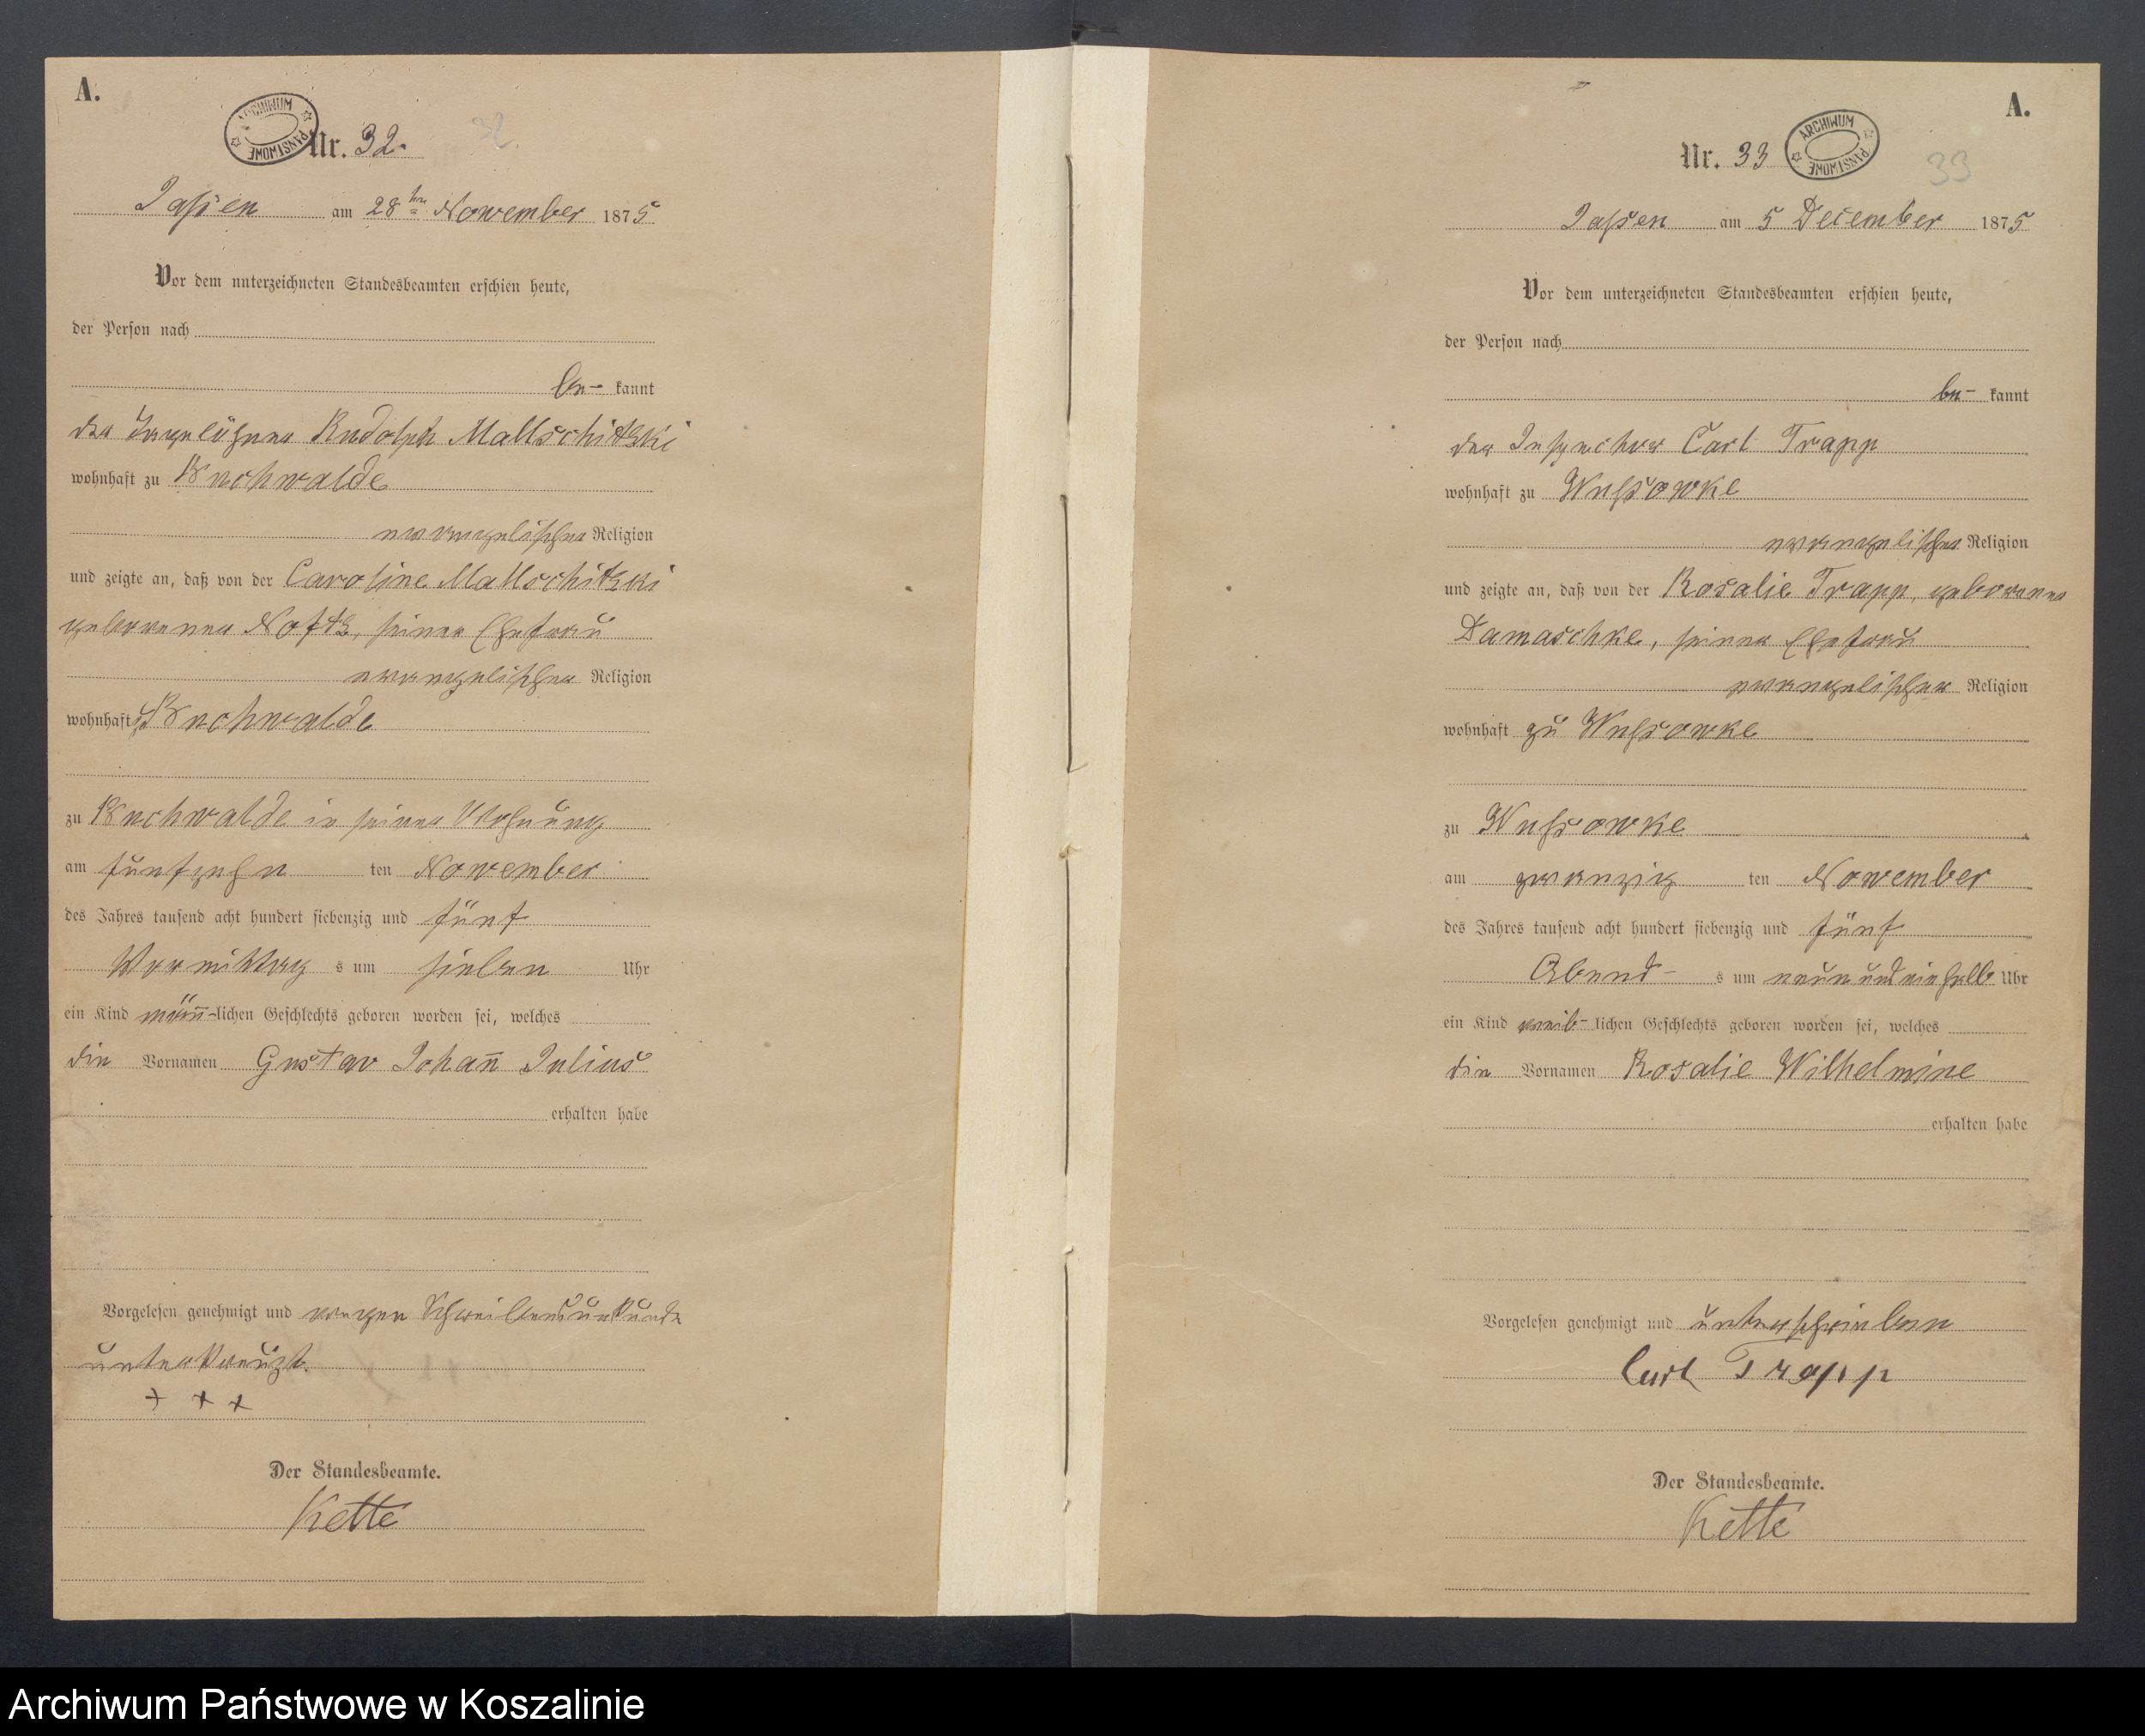 A.
ARCHIWUM PAŃSTWOWE
Nr. 32.
32
Jassen am 28ten November 1875
Vor dem unterzeichneten Standesbeamten erschien heute,
der Person nach
be- kannt
der Tagelöhner Rudolph Mallschitzki
wohnhaft zu Buchwalde
evangelischer Religion
und zeigte an, daß von der Caroline Mallschitzki
geborenen Noftz, seiner Ehefrau
evangelischer Religion
wohnhaft zu Buchwalde
zu Buchwalde in seiner Wohnung
am fünfzehn ten November
des Jahres tausend acht hundert siebenzig und fünf
Vormittag s um sieben Uhr
ein Kind männ-lichen Geschlechts geboren worden sei, welches
die Vornamen Gustav Johann Julius
erhalten habe
Vorgelesen genehmigt und wegen Schreibensunkunde
unterkreuzt.
+ + +
Der Standesbeamte.
Kette
A.
ARCHIWUM PAŃSTWOWE
Nr. 33
33
Jassen am 5 December 1875
Vor dem unterzeichneten Standesbeamten erschien heute,
der Person nach
be- kannt
der Inspector Carl Trapp
wohnhaft zu Wussowke
evangelischer Religion
und zeigte an, daß von der Rosalie Trapp, geborenen
Damaschke, seiner Ehefrau
evangelischer Religion
wohnhaft zu Wussowke
zu Wussowke
am zwanzig ten November
des Jahres tausend acht hundert siebenzig und fünf
Abend- s um neun und ein halb Uhr
ein Kind weib- lichen Geschlechts geboren worden sei, welches
die Vornamen Rosalie Wilhelmine
erhalten habe
Vorgelesen genehmigt und unterschrieben
Carl Trapp
Der Standesbeamte.
Kette
Archiwum Państwowe w Koszalinie